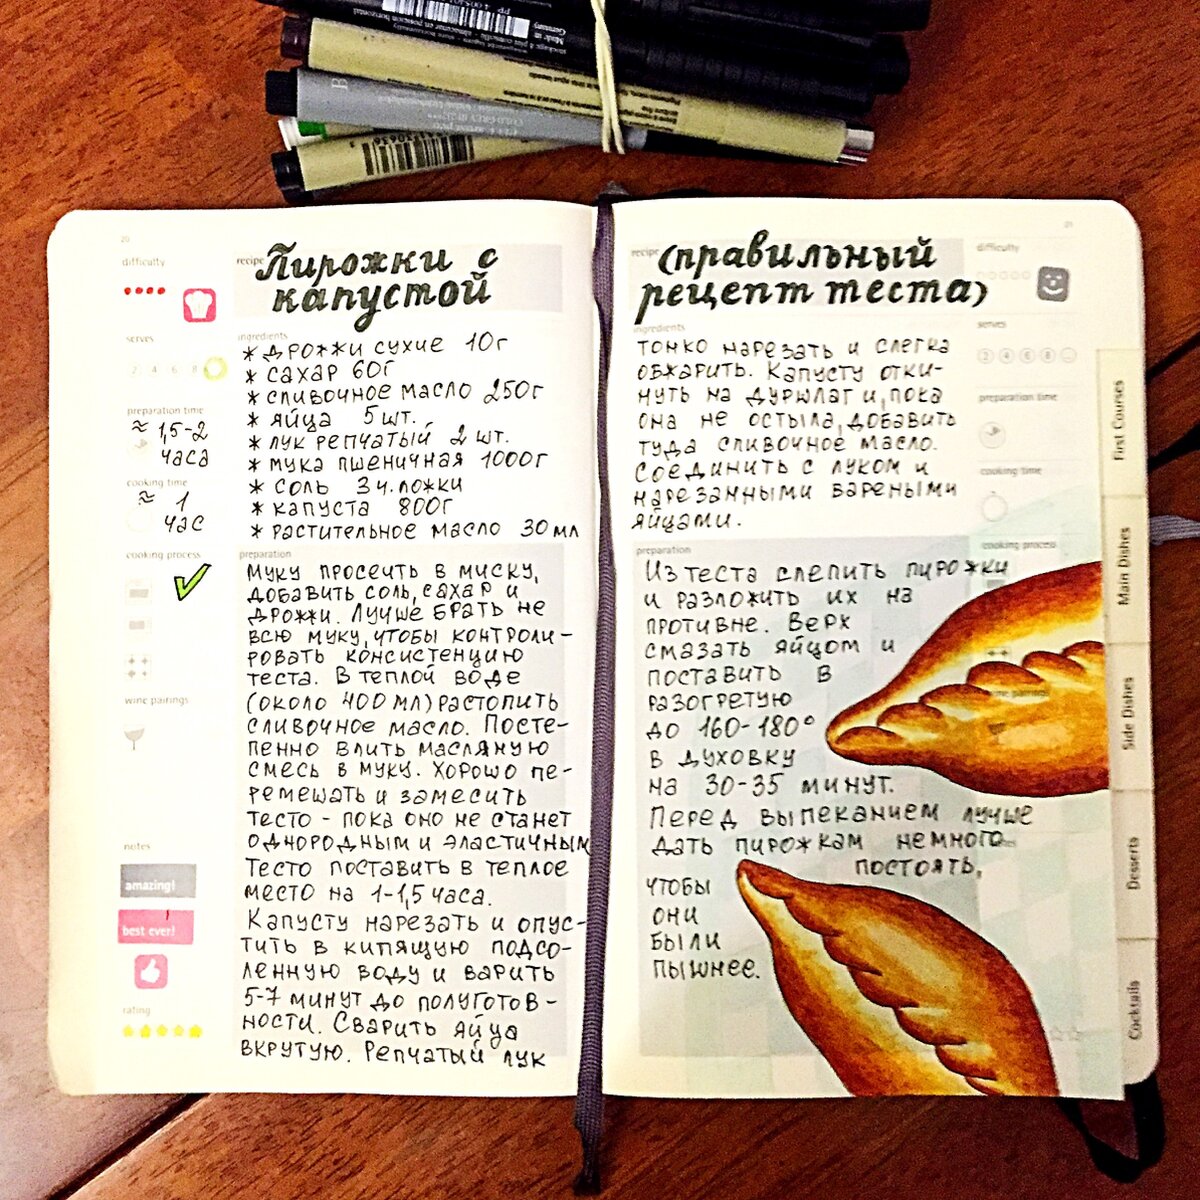 Made in
Germany
20
difficulty
recipe
Пирожки с
капустой
serves
2 4 6 8
preparation time
≈ 1,5-2
часа
cooking time
≈ 1
час
cooking process
wine pairings
notes
amazing!
best ever!
rating
ingredients
* дрожжи сухие 10г
* сахар 60г
* сливочное масло 250г
* яйца 5 шт.
* лук репчатый 2 шт.
* мука пшеничная 1000г
* соль 3 ч.ложки
* капуста 800г
* растительное масло 30 мл
preparation
Муку просеить в миску,
добавить соль, сахар и
дрожжи. Лучше брать не
всю муку, чтобы контроли-
ровать консистенцию
теста. В теплой воде
(около 400 мл) растопить
сливочное масло. Посте-
пенно влить масляную
смесь в муку. Хорошо пе-
ремешать и замесить
тесто - пока оно не станет
однородным и эластичным
Тесто поставить в теплое
место на 1-1,5 часа.
Капусту нарезать и опус-
тить в кипящую подсо-
ленную воду и варить
5-7 минут до полуготов-
ности. Сварить яйца
вкрутую. Репчатый лук
21
recipe
(правильный
рецепт теста)
difficulty
serves
2 4 6 8 ...
preparation time
cooking time
cooking process
wine pairings
ingredients
тонко нарезать и слегка
обжарить. Капусту отки-
нуть на дуршлаг и, пока
она не остыла, добавить
туда сливочное масло.
Соединить с луком и
нарезанными вареными
яйцами.
preparation
Из теста слепить пирожки
и разложить их на
противне. Верх
смазать яйцом и
поставить в
разогретую
до 160-180°
в духовку
на 30-35 минут.
Перед выпеканием лучше
дать пирожкам немного
постоять,
чтобы
они
были
пышнее.
First Courses
Main Dishes
Side Dishes
Desserts
Cocktails